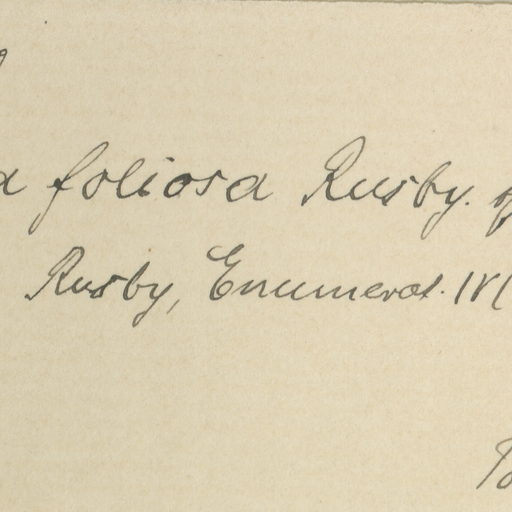 foliosa Rusby.
Rusby, Enumerat.